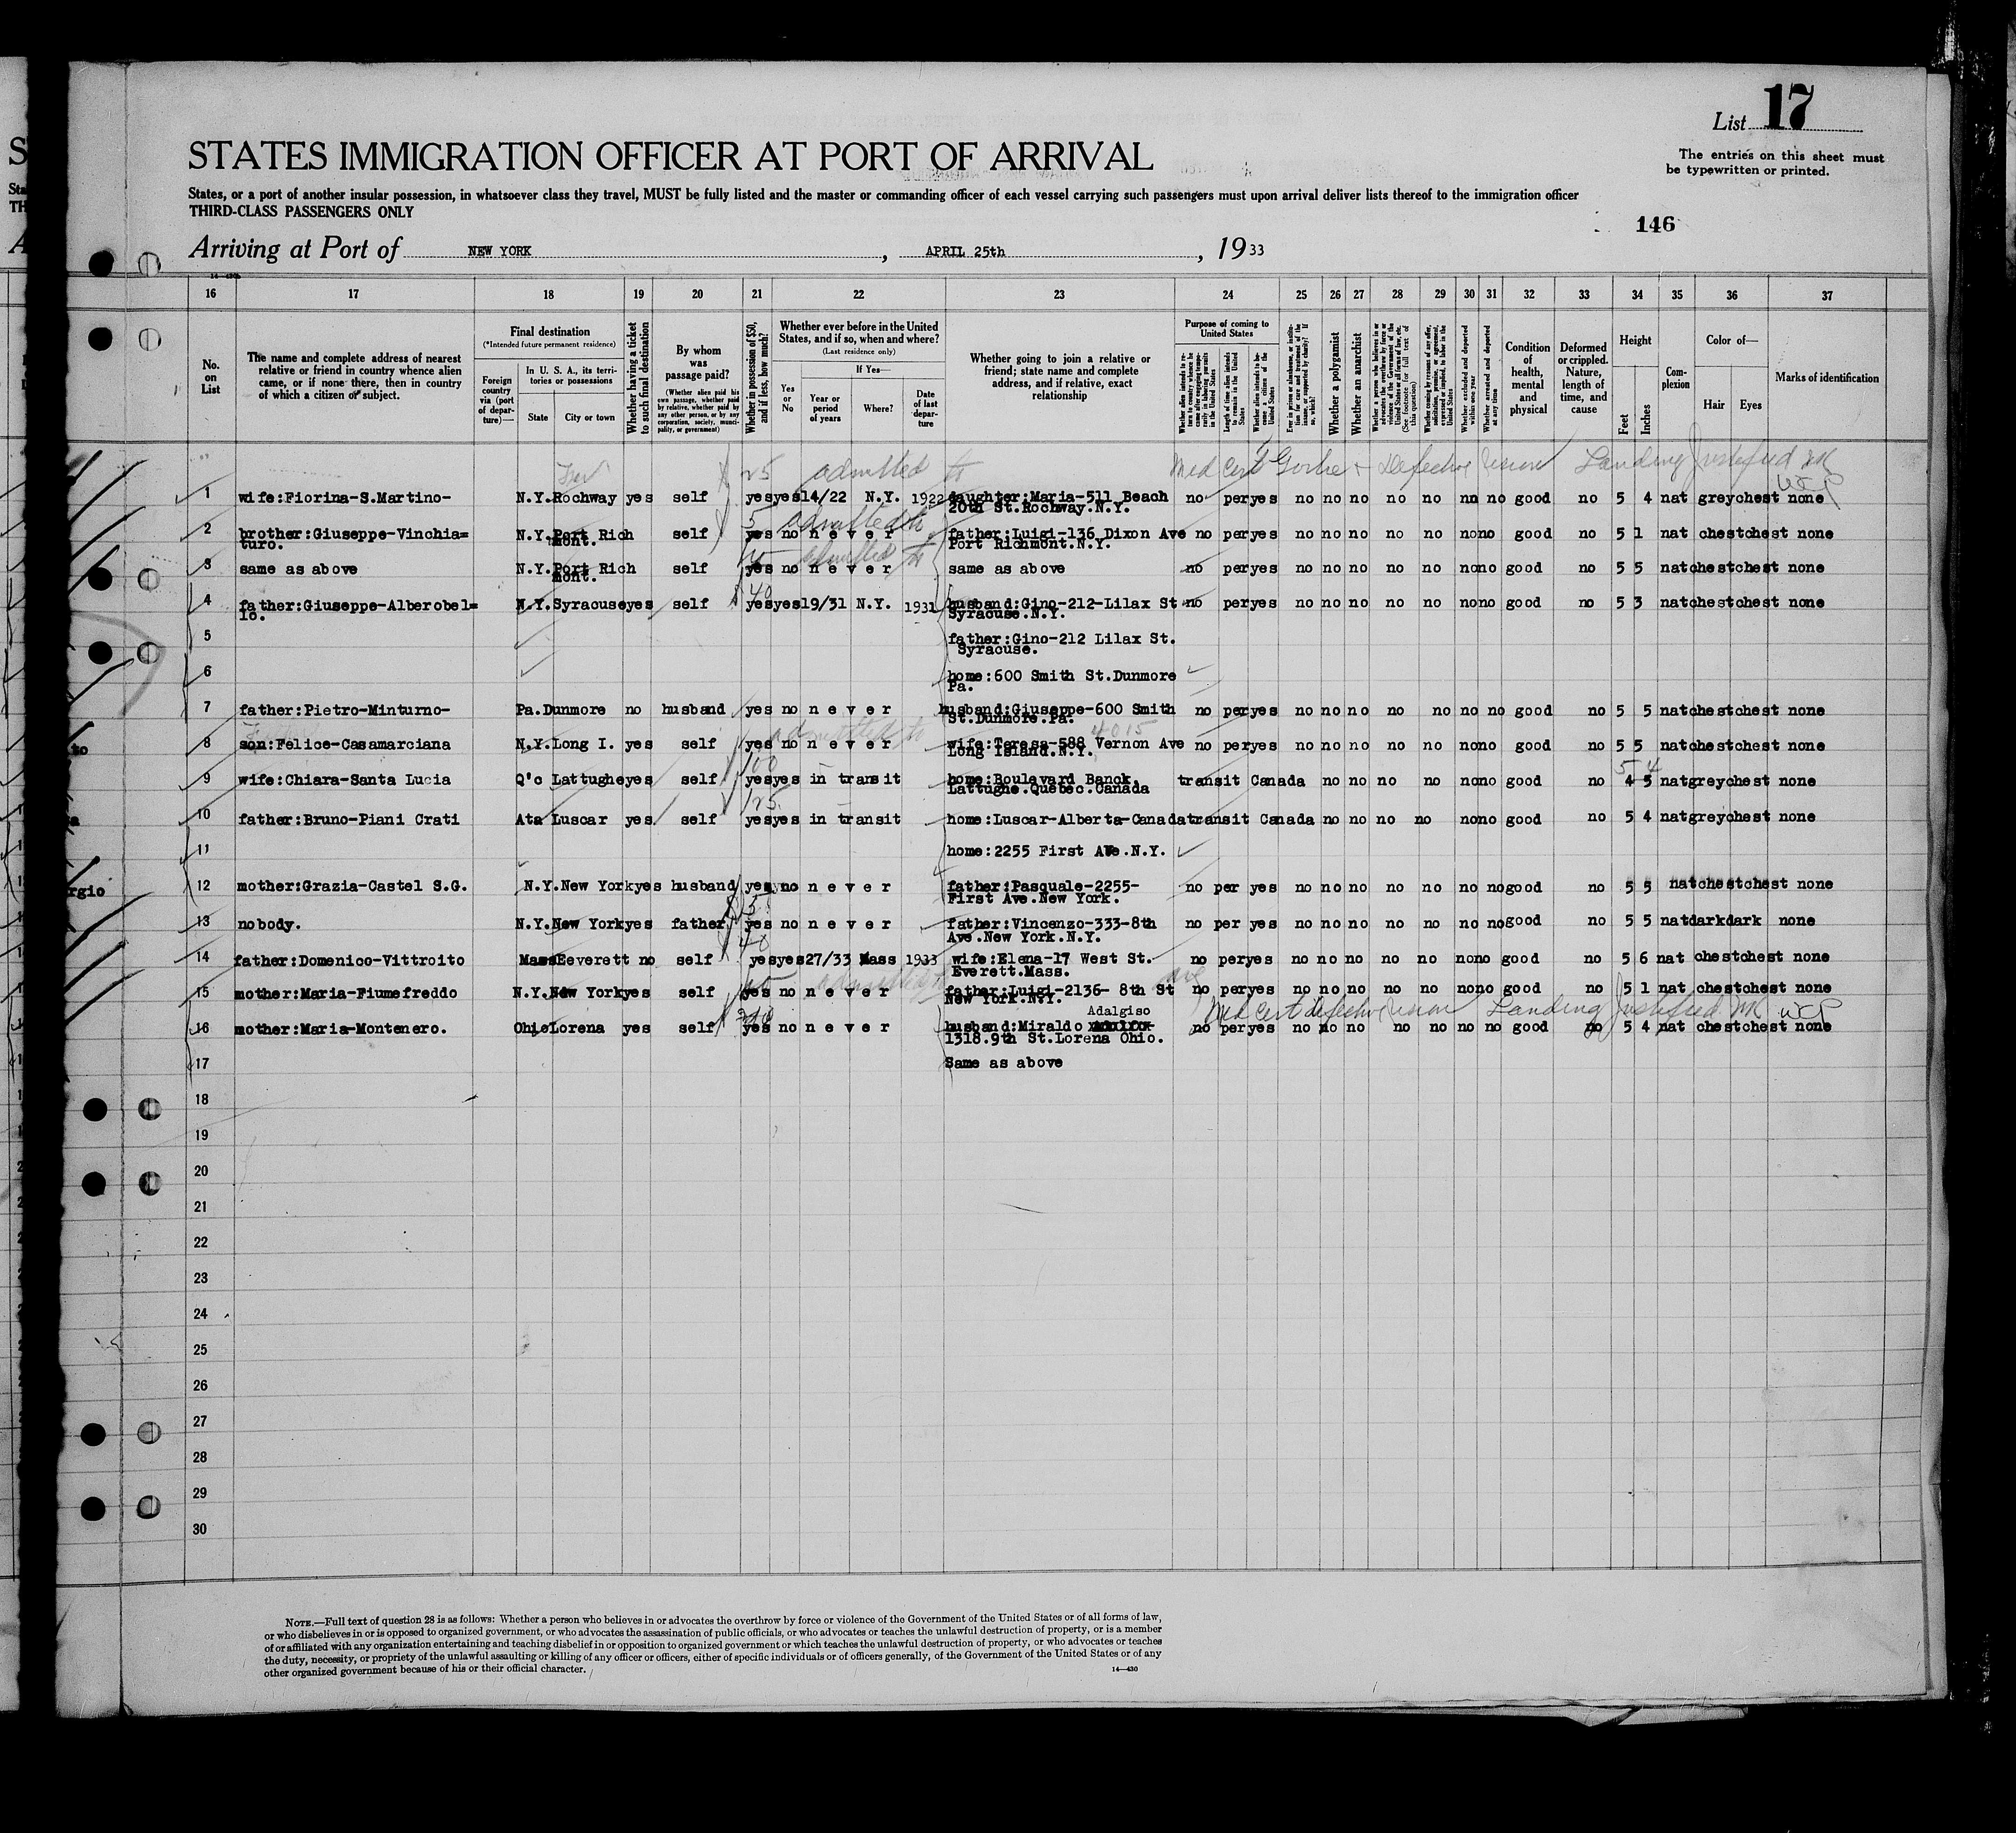 List 17
The entries on this sheet must
be typewritten or printed.
STATES IMMIGRATION OFFICER AT PORT OF ARRIVAL
States, or a port of another insular possession, in whatsoever class they travel, MUST be fully listed and the master or commanding officer of each vessel carrying such passengers must upon arrival deliver lists thereof to the immigration officer
THIRD-CLASS PASSENGERS ONLY
146
Arriving at Port of NEW YORK, APRIL 25th, 1933
16 17 18 19 20 21 22 23 24 25 26 27 28 29 30 31 32 33 34 35 36 37
No. on List
The name and complete address of nearest relative or friend in country whence alien came, or if none there, then in country of which a citizen or subject.
Final destination
(*Intended future permanent residence)
Foreign country via (port of departure)—
In U. S. A., its territories or possessions
State
City or town
Whether having a ticket to such final destination
By whom was passage paid?
(Whether alien paid his own passage, whether paid by relative, whether paid by any other person, or by any corporation, society, municipality, or government)
Whether in possession of $50, and if less, how much?
Whether ever before in the United States, and if so, when and where?
(Last residence only)
Yes or No
If Yes—
Year or period of years
Where?
Date of last departure
Whether going to join a relative or friend; state name and complete address, and if relative, exact relationship
Purpose of coming to United States
Whether a polygamist
Whether an anarchist
Condition of health, mental and physical
Deformed or crippled. Nature, length of time, and cause
Height
Feet
Inches
Complexion
Color of—
Hair
Eyes
Marks of identification
25 admitted Med Cert Goitre + Defective Vision Landing Justified
1 wife:Fiorina-S.Martino- N.Y. Rochway yes self yes yes 14/22 N.Y. 1922 daughter:Maria-511 Beach no per yes no no no no no no no good no 5 4 nat grey chest none
20th St.Rochway.N.Y.
5 admitted
2 brother:Giuseppe-Vinchia= N.Y. Port Rich self yes no n e v e r father:Luigi-136 Dixon Ave no per yes no no no no no no no good no 5 1 nat chest chest none
turo. mont. Port Richmont.N.Y.
admitted
3 same as above N.Y. Port Rich self yes no n e v e r same as above no per yes no no no no no no no good no 5 5 nat chest chest none
mont.
40
4 father:Giuseppe-Alberobel= N.Y. Syracuse yes self yes yes 19/31 N.Y. 1931 husband:Gino-212-Lilax St no per yes no no no no no no no good no 5 3 nat chest chest none
lo. Syracuse.N.Y.
5 father:Gino-212 Lilax St.
Syracuse.
6 home:600 Smith St.Dunmore
Pa.
7 father:Pietro-Minturno- Pa. Dunmore no husband yes no n e v e r husband:Giuseppe-600 Smith no per yes no no no no no no no good no 5 5 nat chest chest none
St.Dunmore.Pa.
admitted 4015
8 son:Felice-Casamarciana N.Y. Long I. yes self yes no n e v e r wife:Teresa-588 Vernon Ave no per yes no no no no no no no good no 5 5 nat chest chest none
Long Island.N.Y.
100 5 4
9 wife:Chiara-Santa Lucia Q'c Lattughe yes self yes yes in transit home:Boulevard Banck. transit Canada no no no no no no good no 4 5 nat grey chest none
Lattughe.Quebec.Canada
125
10 father:Bruno-Piani Crati Ata Luscar yes self yes yes in transit home:Luscar-Alberta-Canada transit Canada no no no no no no good no 5 4 nat grey chest none
11 home:2255 First Ave.N.Y.
12 mother:Grazia-Castel S.G. N.Y. New York yes husband yes no n e v e r father:Pasquale-2255- no per yes no no no no no no no good no 5 5 nat chest chest none
First Ave.New York.
13 nobody. N.Y. New York yes father yes no n e v e r father:Vincenzo-333-8th no per yes no no no no no no no good no 5 5 nat dark dark none
Ave.New York.N.Y.
40
14 father:Domenico-Vittroito Mass Eeverett no self yes yes 27/33 Mass 1933 wife:Elena-17 West St. no per yes no no no no no no no good no 5 6 nat chest chest none
Everett.Mass.
admitted Ave
15 mother:Maria-Fiumefreddo N.Y. New York yes self yes no n e v e r father:Luigi-2136- 8th St no per yes no no no no no no no good no 5 1 nat chest chest none
New York.N.Y.
Adalgiso Med Cert defective vision Landing Justified
16 mother:Maria-Montenero. Ohio Lorena yes self yes no n e v e r husband:Miraldo no per yes no no no no no no no good no 5 4 nat chest chest none
1318.9th St.Lorena Ohio.
17 Same as above
18
19
20
21
22
23
24
25
26
27
28
29
30
NOTE.—Full text of question 28 is as follows: Whether a person who believes in or advocates the overthrow by force or violence of the Government of the United States or of all forms of law,
or who disbelieves in or is opposed to organized government, or who advocates the assassination of public officials, or who advocates or teaches the unlawful destruction of property, or is a member
of or affiliated with any organization entertaining and teaching disbelief in or opposition to organized government or which teaches the unlawful destruction of property, or who advocates or teaches
the duty, necessity, or propriety of the unlawful assaulting or killing of any officer or officers, either of specific individuals or of officers generally, of the Government of the United States or of any
other organized government because of his or their official character.
14—430